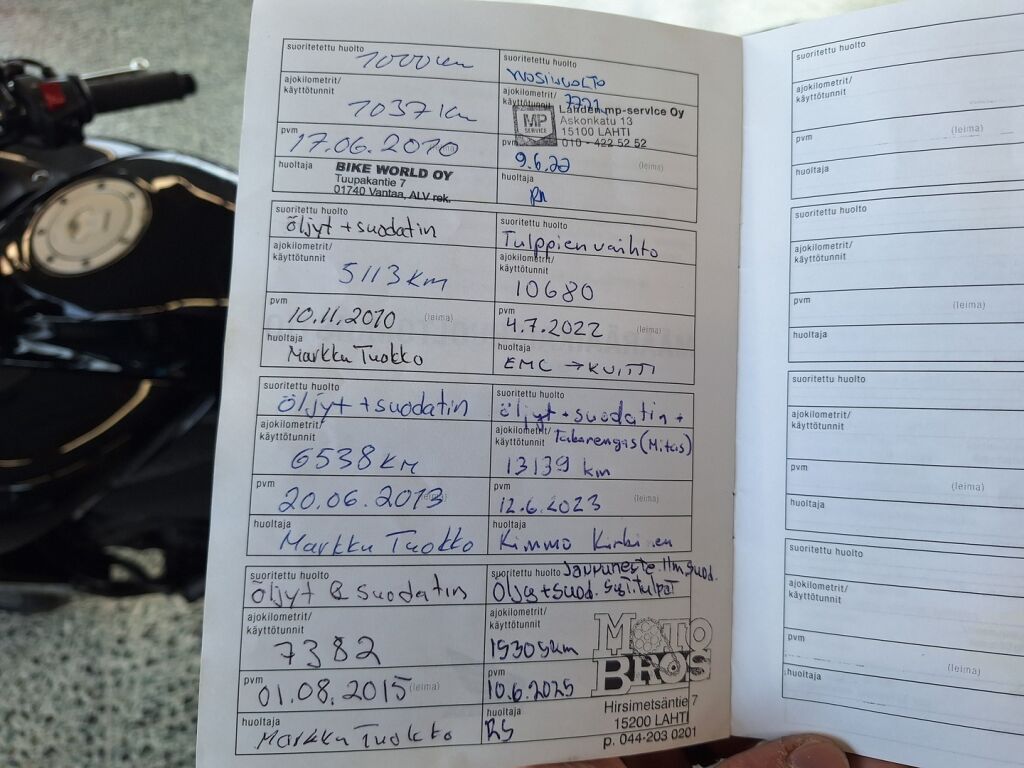 suoritetettu huolto
1000 km
ajokilometrit/
käyttötunnit
1037 km
pvm
17.06.2010
huoltaja
BIKE WORLD OY
Tuupakantie 7
01740 Vantaa, ALV rek.
suoritettu huolto
öljyt + suodatin
ajokilometrit/
käyttötunnit
5113 km
pvm
10.11.2010 (leima)
huoltaja
Markku Tuokko
suoritettu huolto
öljyt + suodatin
ajokilometrit/
käyttötunnit
6538 km
pvm
20.06.2013 (leima)
huoltaja
Markku Tuokko
suoritettu huolto
öljyt & suodatin
ajokilometrit/
käyttötunnit
7382
pvm
01.08.2015 (leima)
huoltaja
Markku Tuokko
suoritettu huolto
VUOSIHUOLTO
ajokilometrit/
käyttötunnit 7771
MP
SERVICE
Lahden mp-service Oy
Askonkatu 13
15100 LAHTI
010 - 422 52 52
pvm
9.6.22 (leima)
huoltaja
suoritettu huolto
Tulppien vaihto
ajokilometrit/
käyttötunnit
10680
pvm
4.7.2022 (leima)
huoltaja
EMC → KUITTI
suoritettu huolto
öljyt + suodatin +
ajokilometrit/
käyttötunnit Takarengas (Mitas)
13139 km
pvm
12.6.2023 (leima)
huoltaja
Kimmo
suoritettu huolto Jarruneste. Ilm.suod.
Öljyt + suod. Sytytulpat
ajokilometrit/
käyttötunnit
15305km
MOTO
BROS
pvm
10.6.2025
huoltaja
RS
Hirsimetsäntie 7
15200 LAHTI
p. 044-203 0201
suoritettu huolto
ajokilometrit/
käyttötunnit
pvm
(leima)
huoltaja
suoritettu huolto
ajokilometrit/
käyttötunnit
pvm
(leima)
huoltaja
suoritettu huolto
ajokilometrit/
käyttötunnit
pvm
(leima)
huoltaja
suoritettu huolto
ajokilometrit/
käyttötunnit
pvm
(leima)
huoltaja